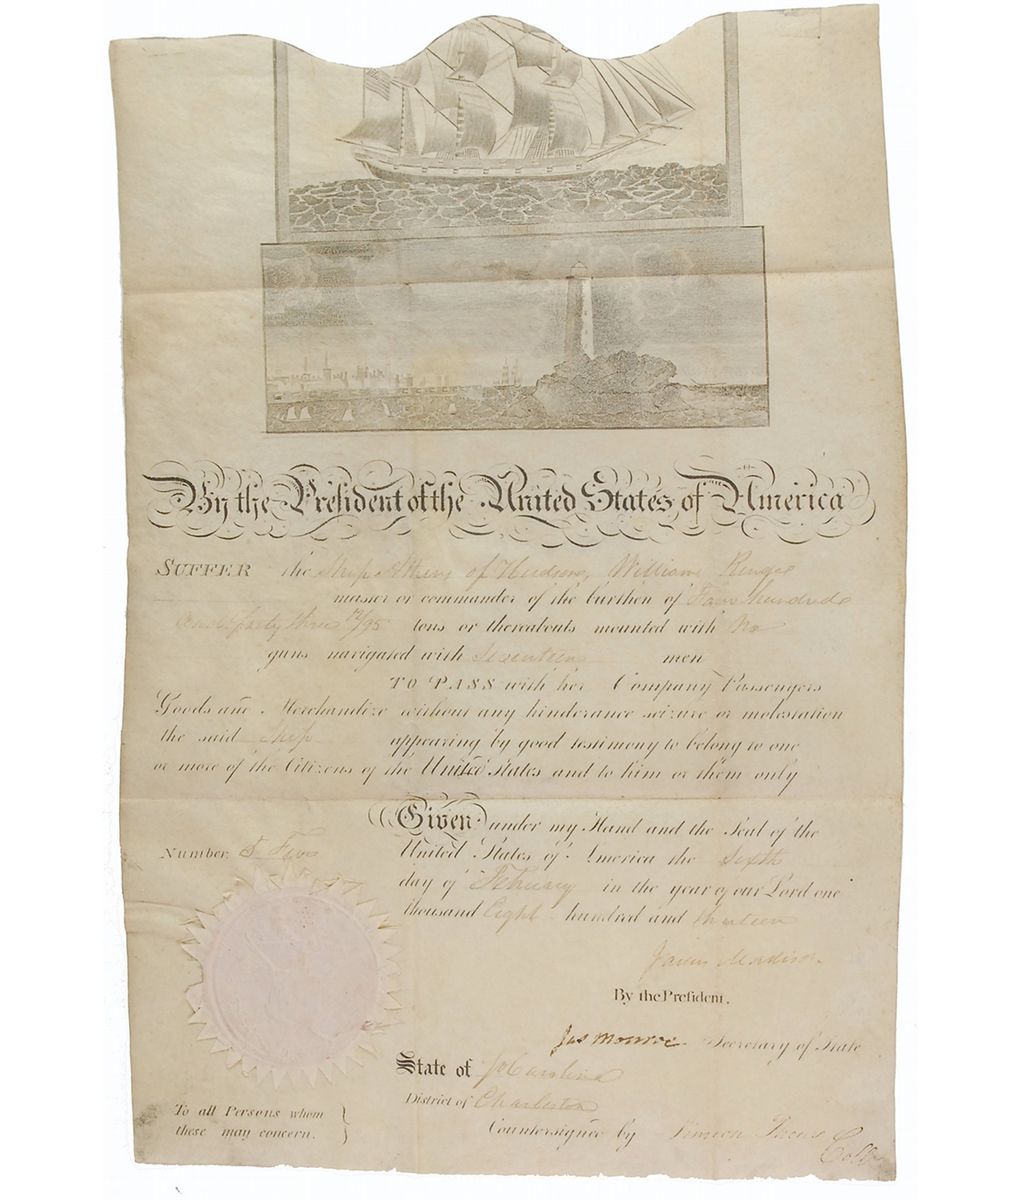 By the President of the United States of America
SUFFER the Ship Athens of Hudson, William
master or commander of the burthen of Four hundred
and forty three /95 tons or thereabouts mounted with No
guns navigated with Seventeen men
TO PASS with her Company Passengers
Goods and Merchandize without any hinderance seizure or molestation
the said Ship appearing by good testimony to belong to one
or more of the Citizens of the United States and to him or them only
Given under my Hand and the Seal of the
United States of America the Sixth
Number 5 Five
day of February in the year of our Lord one
thousand Eight hundred and thirteen
James Madison
By the President,
Jas Monroe Secretary of State
State of So Carolina
District of Charleston
To all Persons whom
these may concern.
Countersigned by Simeon Theus
Coll